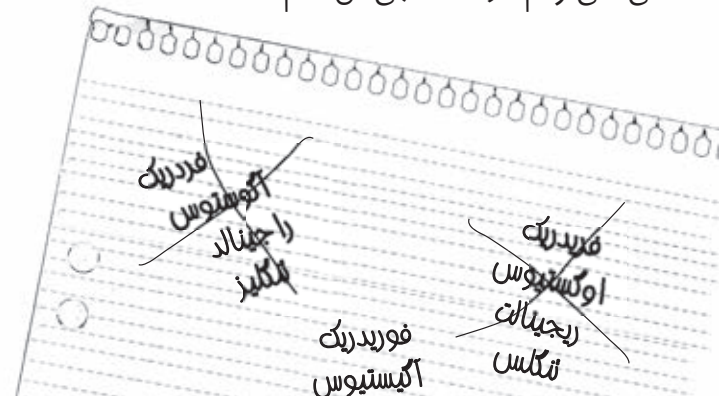 فردریک
آگوستوس
راجینالد
تنگلیز
فدیدریک
اوگستیوس
ریجینالت
تنگلس
فوریدریک
آگیستیوس